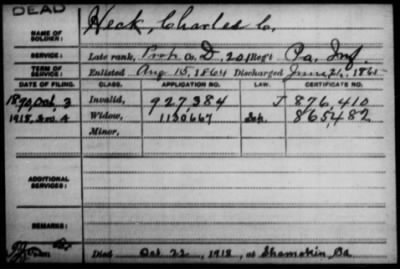 DEAD
NAME OF SOLDIER: Heck, Charles C.
SERVICE: Late rank, Co. D, 201 Reg't Pa. Inf.
TERM OF SERVICE: Enlisted Aug 15, 1864 Discharged June 21, 1865
DATE OF FILING. CLASS. APPLICATION NO. LAW. CERTIFICATE NO.
1890, Oct, 3 Invalid, 927,384 J 876,410
1918, 4 Widow, 1130,667 865,482
Minor,
ADDITIONAL SERVICES:
REMARKS:
Died Oct 22, 1918, at Shamokin, Pa